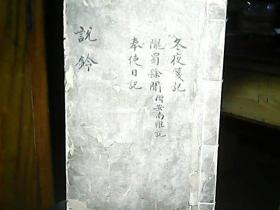 冬夜箋記
隴蜀餘聞 附安南雜記
奉使日記
說鈴